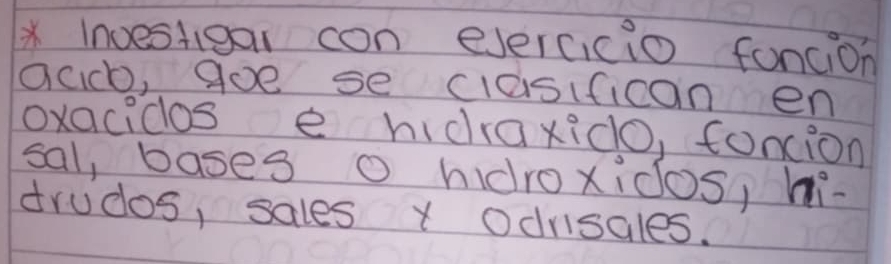 * Investigar con ejercicio función
acido, que se clasifican en
oxacidos e hidraxido, funcion
sal, bases o hidroxidos, hi-
drudos, sales y odrisales.